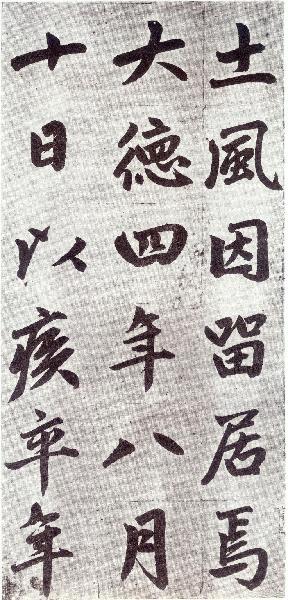 土風因留居焉
大德四年八月
十日以疾卒年